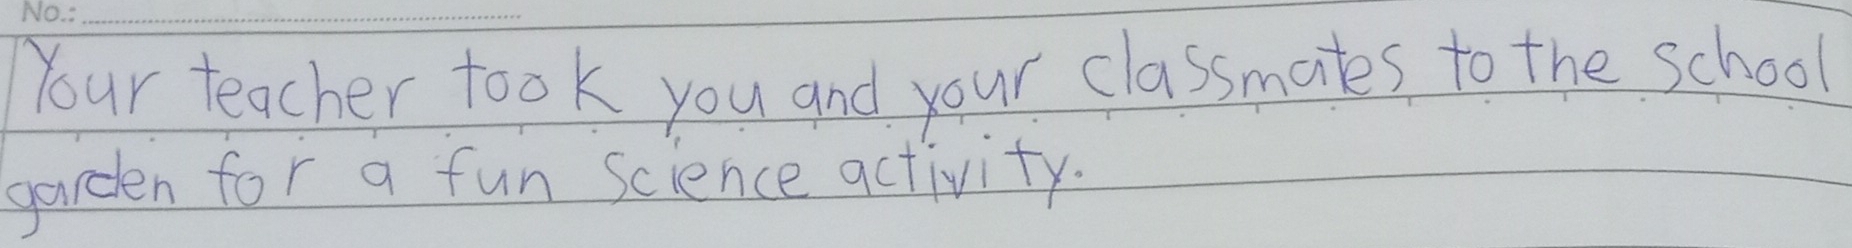 No.:
Your teacher took you and your classmates to the school
garden for a fun science activity.